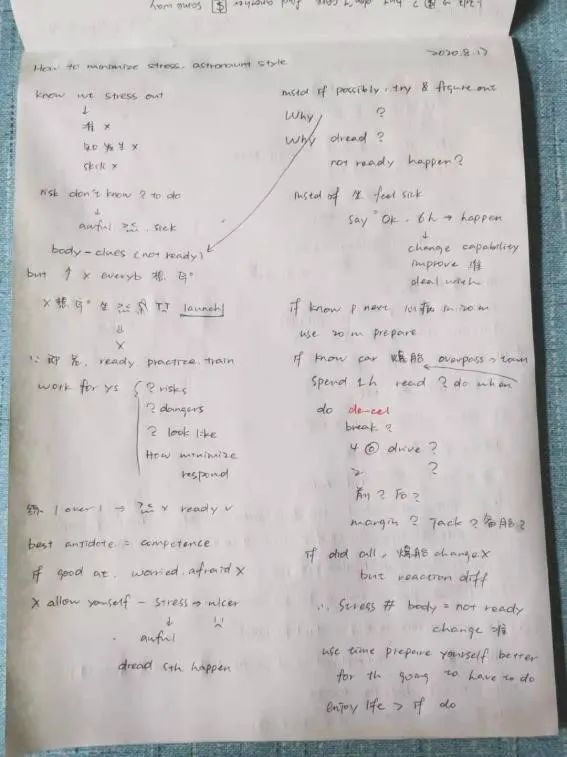 2020.8.17
How to minimize stress, astronaunt style
know we stress out
↓
准 x
知 发生 x
skill x
risk don't know ? to do
↓
awful 感 . sick
body - clues (not ready)
but ↑ x everyb 想
x 想 launch
↓
x
ready practice train
work for ys { ? risks
? dangers
? look like
How minimize
respond
练 1 over 1 → x ready v
best antidote = competence
if good at, worried, afraid x
x allow yourself - stress → nicer
↓
awful
dread sth happen
insted of possibly, try & figure out
Why ?
Why dread ?
not ready happen?
insted of 生 feel sick
say "Ok. 6h → happen
↓
change capability
improve 准
deal with
if know p next, in 20 m
use 20 m prepare
if know car 爆胎 overpass > town
Spend 1h read ? do when
do de-cel
break ?
4 ⊙ drive ?
2 ?
前 ? 后 ?
margin ? Jack ? 备胎 ?
if did all, 爆胎 change x
but reaction diff
∴ Stress # body = not ready
change 准
use time prepare yourself better
for th going to have to do
enjoy life > if do